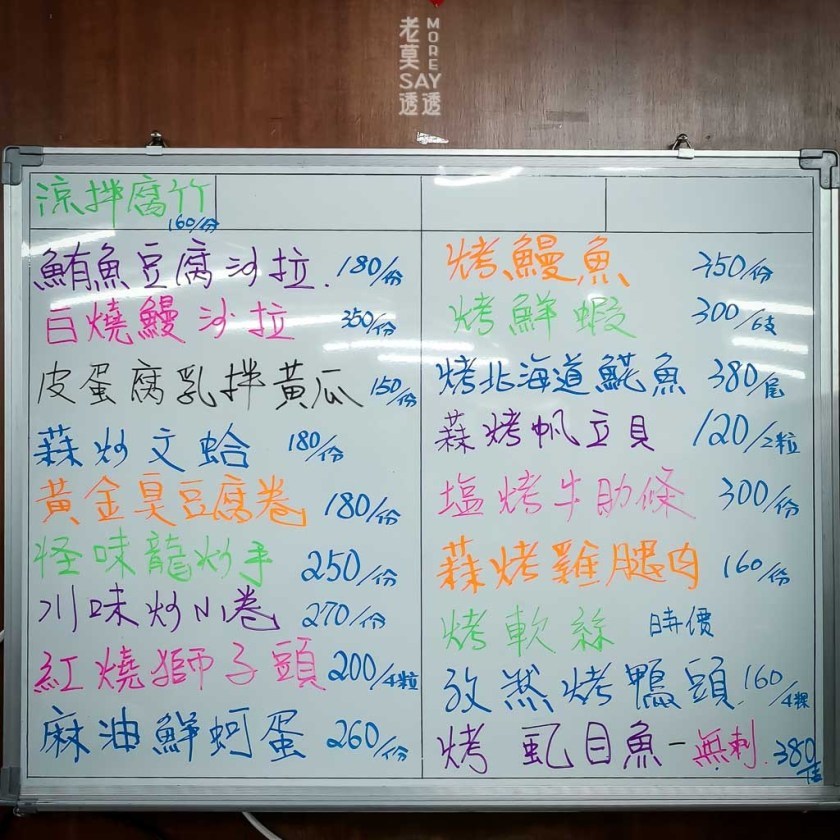 老莫 MORE
SAY
透透
涼拌腐竹
160/份
鮪魚豆腐沙拉. 180/份
白燒鰻沙拉 350/份
皮蛋腐乳拌黃瓜 150/份
蒜炒文蛤 180/份
黃金臭豆腐卷 180/份
怪味龍炒手 250/份
川味炒小卷 270/份
紅燒獅子頭 200/4粒
麻油鮮蚵蛋 260/份
烤鰻魚 350/份
烤鮮蝦 300/6支
烤北海道䱇魚 380/尾
蒜烤帆立貝 120/2粒
塩烤牛助條 300/份
蒜烤雞腿肉 160/份
烤軟絲 時價
孜然烤鴨頭 160/4顆
烤虱目魚-無刺. 380